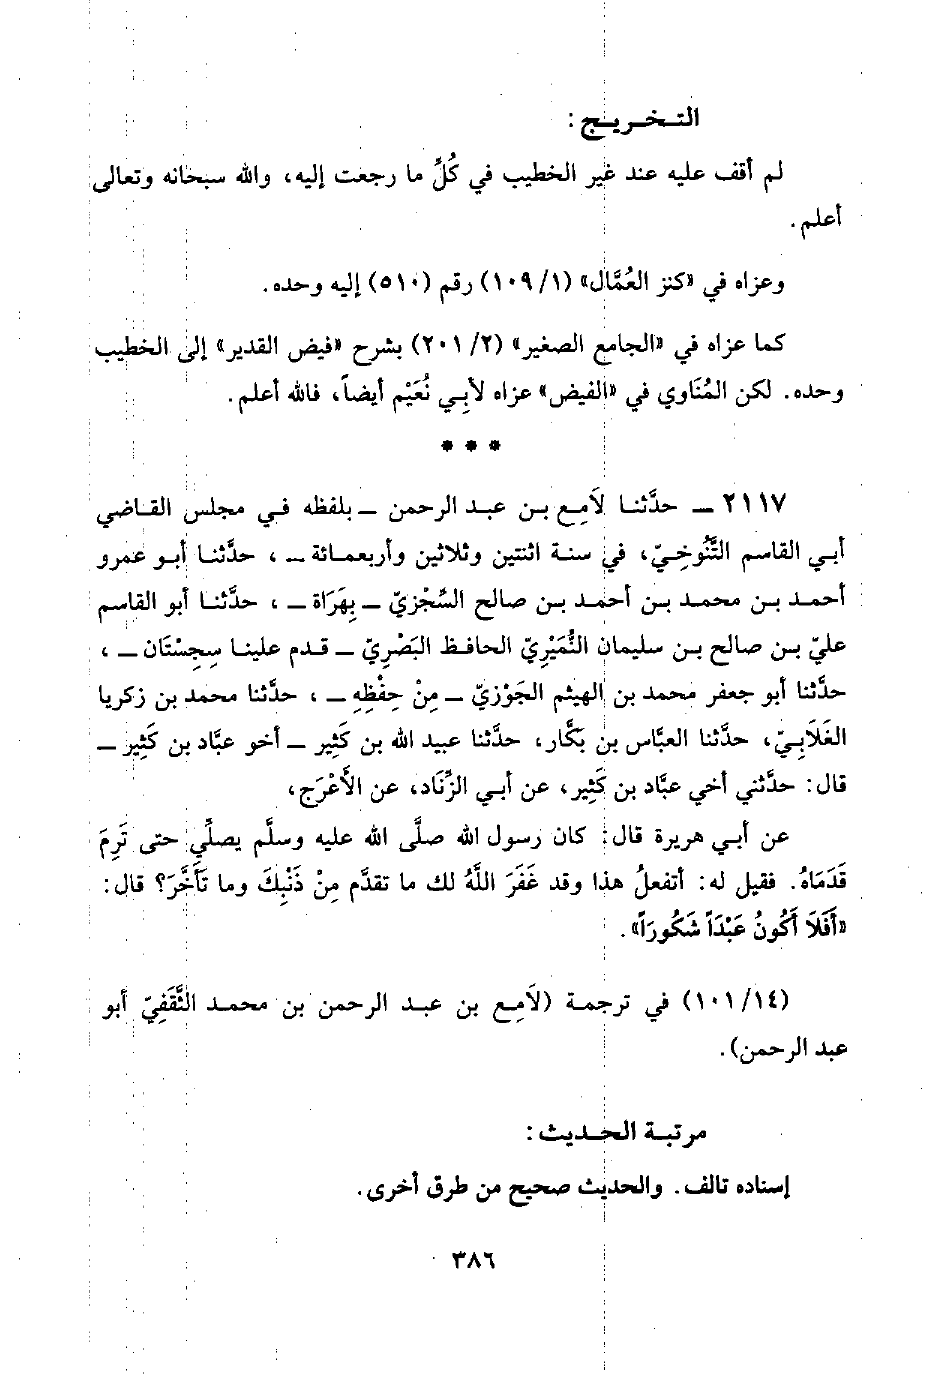 التـخـريـج :
لم أقف عليه عند غير الخطيب في كُلِّ ما رجعت إليه، والله سبحانه وتعالى
أعلم.
وعزاه في «كنز العُمَّال» (١/ ١٠٩) رقم (٥١٠) إليه وحده.
كما عزاه في «الجامع الصغير» (٢/ ٢٠١) بشرح «فيض القدير» إلى الخطيب
وحده. لكن المُنَاوي في «الفيض» عزاه لأبي نُعَيْم أيضاً، فالله أعلم.
* * *
٢١١٧ ــ حدَّثنا لَامِع بن عبد الرحمن ــ بلفظه في مجلس القاضي
أبي القاسم التَّنُوخِيّ، في سنة اثنتين وثلاثين وأربعمائة ــ ، حدَّثنا أبو عمرو
أحمد بن محمد بن أحمد بن صالح السِّجْزِيّ ــ بِهَرَاة ــ ، حدَّثنا أبو القاسم
عليّ بن صالح بن سليمان النُّمَيْرِيّ الحافظ البَصْرِيّ ــ قدم علينا سِجِسْتَان ــ ،
حدَّثنا أبو جعفر محمد بن الهيثم الجَوْزِيّ ــ مِنْ حِفْظِهِ ــ ، حدَّثنا محمد بن زكريا
الغَلَابِيّ، حدَّثنا العبَّاس بن بَكَّار، حدَّثنا عبيد الله بن كَثِير ــ أخو عبَّاد بن كَثِير ــ
قال: حدَّثني أخي عبَّاد بن كَثِير، عن أبي الزِّنَاد، عن الأَعْرَج،
عن أبي هريرة قال: كان رسول الله صلَّى الله عليه وسلَّم يصلِّي حتى تَرِمَ
قَدَمَاهُ. فقيل له: أتفعلُ هذا وقد غَفَرَ اللَّهُ لك ما تقدَّم مِنْ ذَنْبِكَ وما تَأَخَّرَ؟ قال:
«أَفَلَا أَكُونُ عَبْدَاً شَكُورَاً».
(١٤/ ١٠١) في ترجمة (لَامِع بن عبد الرحمن بن محمد الثَّقَفِيّ أبو
عبد الرحمن).
مرتبة الحديث :
إسناده تالف. والحديث صحيح من طرق أخرى.
٣٨٦